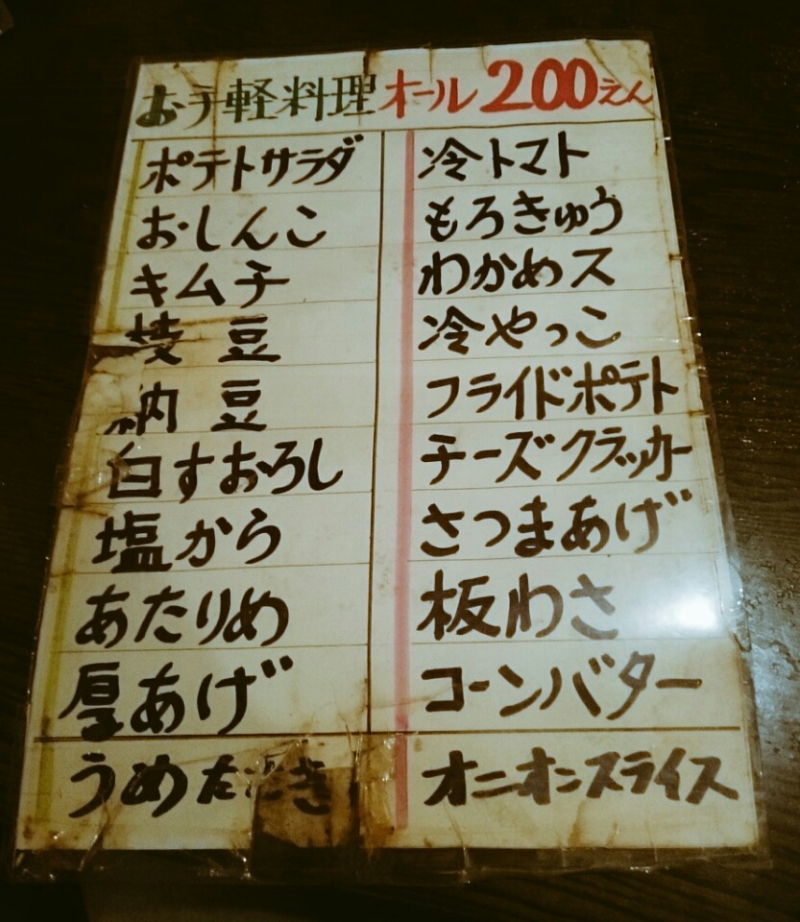 お手軽料理 オール200えん
ポテトサラダ
おしんこ
キムチ
枝豆
納豆
白すおろし
塩から
あたりめ
厚あげ
うめたたき
冷トマト
もろきゅう
わかめス
冷やっこ
フライドポテト
チーズクラッカー
さつまあげ
板わさ
コーンバター
オニオンスライス